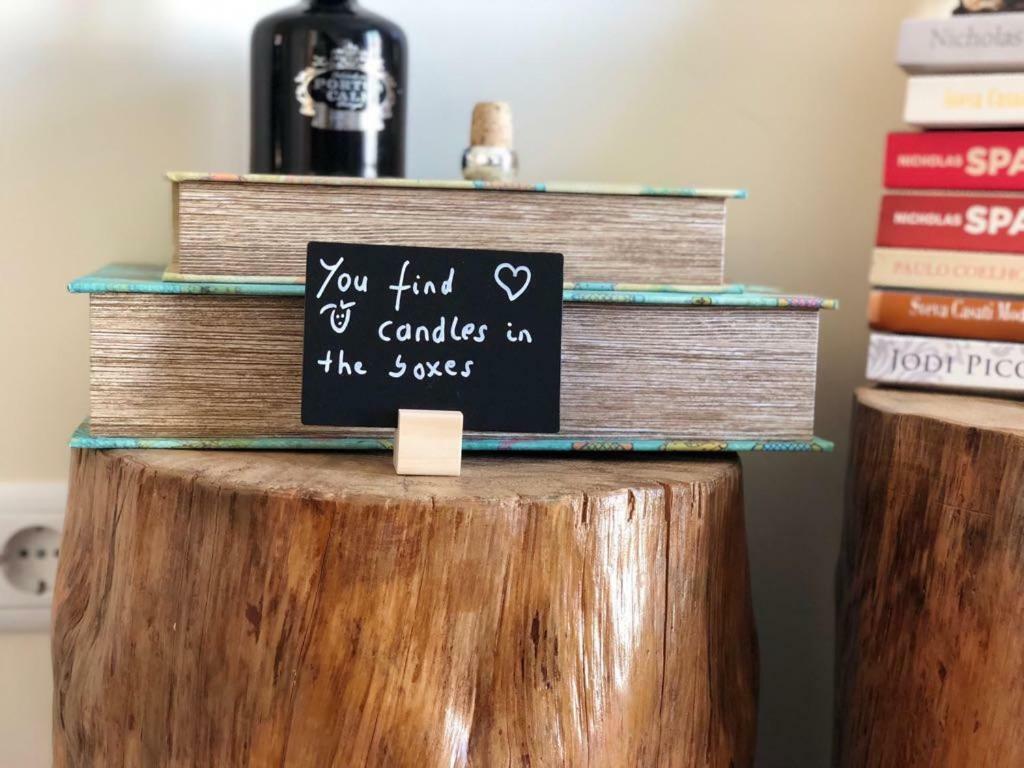 PORTUS
CALE
You find
candles in
the boxes
Nicholas
NICHOLAS SPA
NICHOLAS SPA
PAULO COELHO
Sveva Casati Mod
JODI PICO